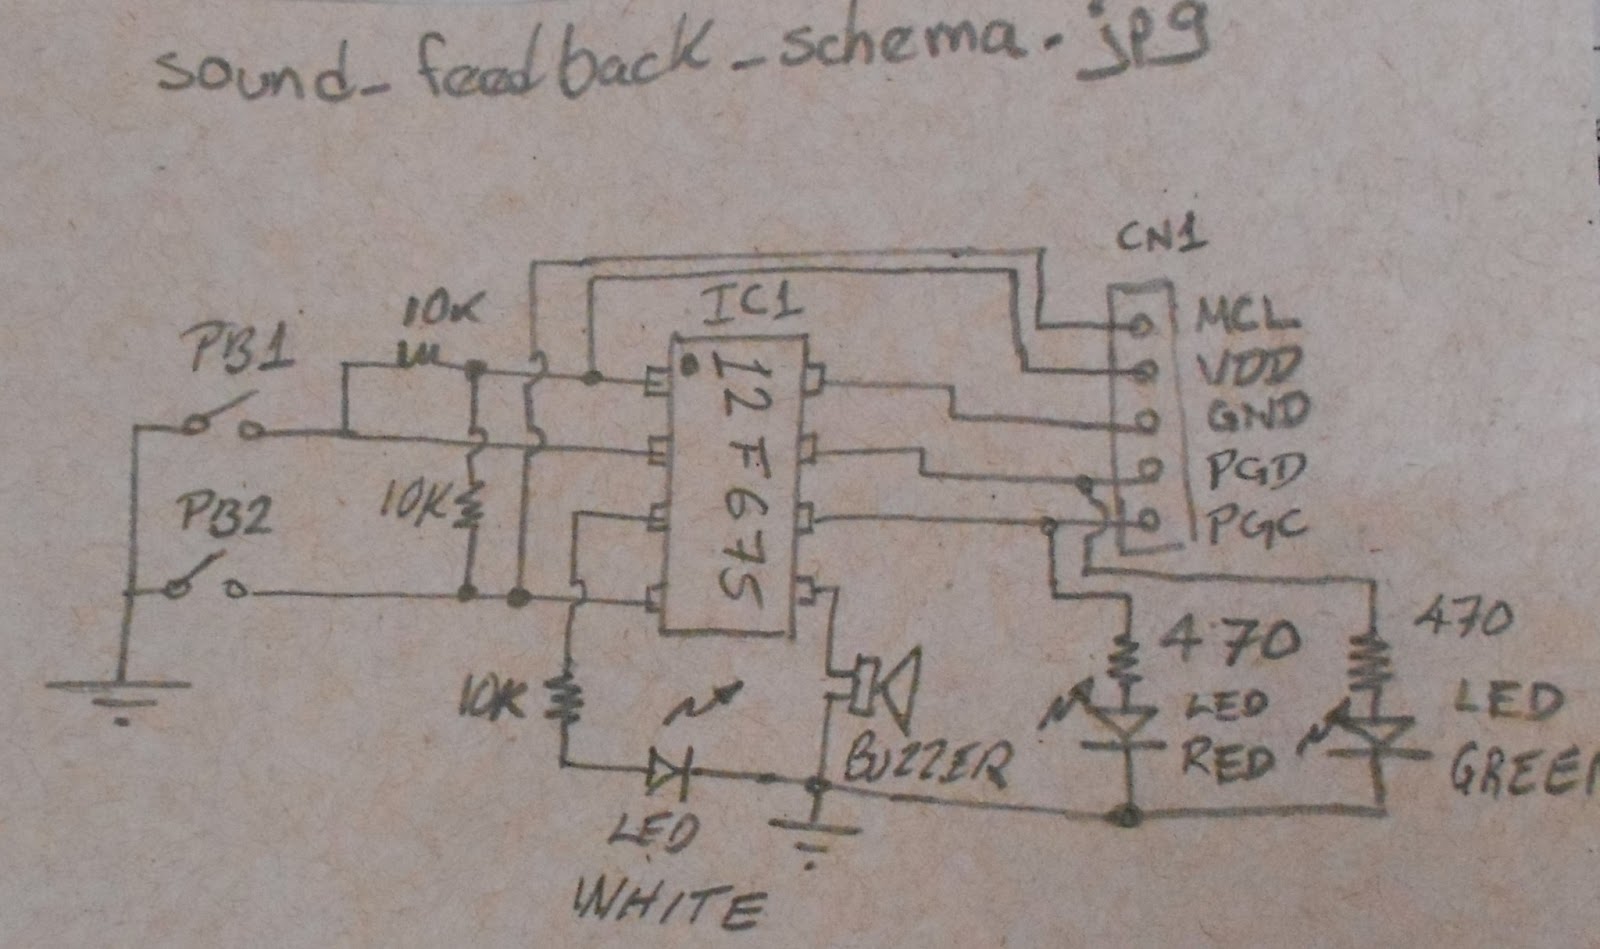 sound_feedback_schema.jpg
CN1
IC1
10K
MCL
PB1
VDD
12F675
GND
PGD
10K
PB2
PGC
470
470
10K
LED
RED
LED
BUZZER
GREEN
LED
WHITE